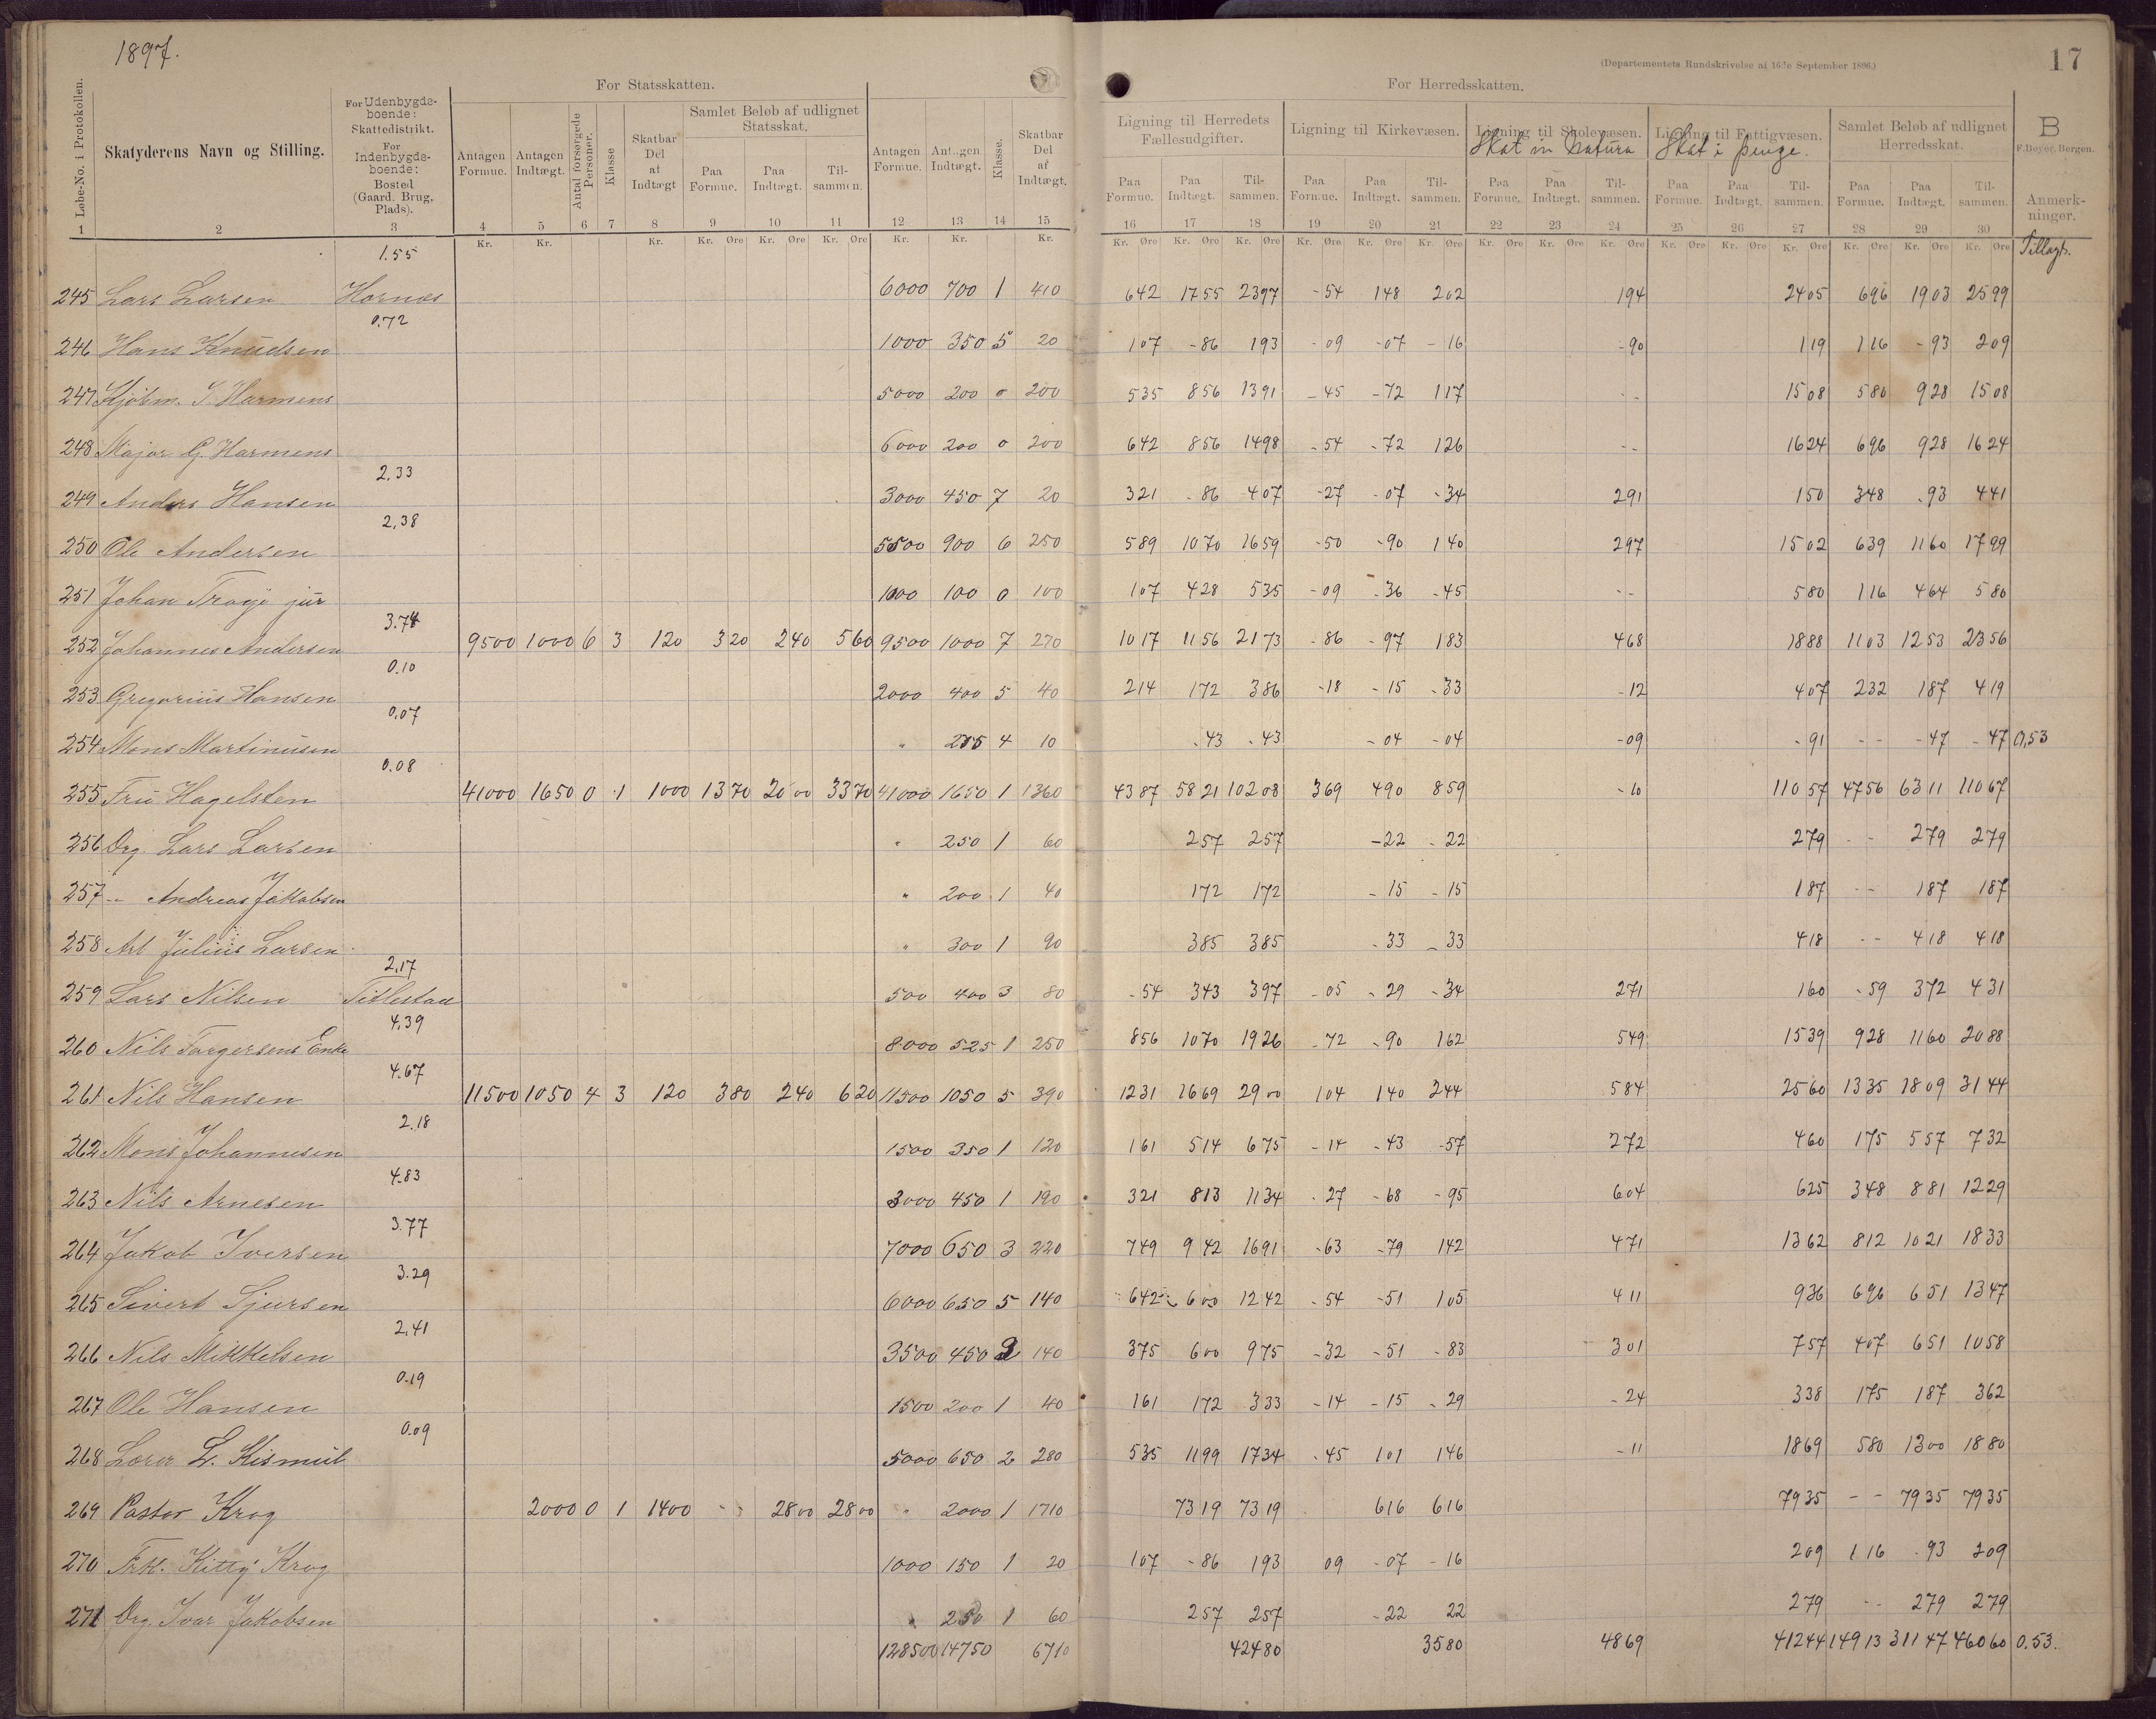 1897.
17
(Departementets Rundskrivelse af 16de September 1896.)
For Statsskatten.
For Herredsskatten.
Løbe-No. i Protokollen.
Skatyderens Navn og Stilling.
For Udenbygds-boende: Skattedistrikt. For Indenbygds-boende: Bosted (Gaard, Brug, Plads).
Antagen Formue.
Antagen Indtægt.
Antal forsørgede Personer.
Klasse
Skatbar Del at Indtægt
Samlet Beløb af udlignet Statsskat.
Paa Formue. Paa Indtægt. Til-sammen.
Antagen Formue.
Antagen Indtægt.
Klasse.
Skatbar Del af Indtægt.
Ligning til Herredets Fællesudgifter.
Ligning til Kirkevæsen.
Ligning til Skolevæsen.
Skat in Natura
Ligning til Fattigvæsen.
Skat i penge.
Samlet Beløb af udlignet Herredsskat.
B
F. Beyer, Bergen.
Paa Formue. Paa Indtægt. Til-sammen. Paa Formue. Paa Indtægt. Til-sammen. Paa Formue. Paa Indtægt. Til-sammen. Paa Formue. Paa Indtægt. Til-sammen. Paa Formue. Paa Indtægt. Til-sammen.
Anmerk-ninger.
1 2 3 4 5 6 7 8 9 10 11 12 13 14 15 16 17 18 19 20 21 22 23 24 25 26 27 28 29 30
Kr. Kr. Kr. Kr. Øre Kr. Øre Kr. Øre Kr. Kr. Kr. Kr. Øre Kr. Øre Kr. Øre Kr. Øre Kr. Øre Kr. Øre Kr. Øre Kr. Øre Kr. Øre Kr. Øre Kr. Øre Kr. Øre Kr. Øre Kr. Øre Kr. Øre
Tillagt.
1.55
245 Lars Larsen Hornæs 6000 700 1 410 642 1755 2397 -54 148 202 194 2405 696 1903 2599
0.72
246 Hans Knudsen 1000 350 5 20 107 -86 193 -09 -07 -16 -90 119 116 -93 209
247 Kjøbm. S. Harmens 5000 200 0 200 535 856 1391 -45 -72 117 -- 1508 580 928 1508
248 Major G. Harmens 6000 200 0 200 642 856 1498 -54 -72 126 -- 1624 696 928 1624
2.33
249 Anders Hansen 3000 450 7 20 321 -86 407 -27 -07 -34 291 150 348 -93 441
2.38
250 Ole Andersen 5500 900 6 250 589 1070 1659 -50 -90 140 297 1502 639 1160 1799
251 Johan Troye jur 1000 100 0 100 107 428 535 -09 -36 -45 -- 580 116 464 580
3.74
252 Johannes Andersen 9500 1000 6 3 120 320 240 560 9500 1000 7 270 1017 1156 2173 -86 -97 183 468 1888 1103 1253 2356
0.10
253 Gregorius Hansen 2000 400 5 40 214 172 386 -18 -15 -33 -12 407 232 187 419
0.07
254 Mons Martinusen " 275 4 10 -43 -43 -04 -04 -09 -91 -- -47 -47 0,53
0.08
255 Fru Hagelsten 41000 1650 0 1 1000 1370 2000 3370 41000 1650 1 1360 4387 5821 10208 369 490 859 -10 11057 4756 6311 11067
256 Drg. Lars Larsen " 250 1 60 257 257 -22 -22 279 -- 279 279
257 -"- Andreas Jakobsen " 200 1 40 172 172 -15 -15 187 -- 187 187
258 Arb Julius Larsen " 300 1 90 385 385 -33 -33 418 -- 418 418
2.17
259 Lars Nilsen Titlestad 500 400 3 80 -54 343 397 -05 -29 -34 271 160 -59 372 431
4.39
260 Nils Torgersens Enke 8000 525 1 250 856 1070 1926 -72 -90 162 549 1539 928 1160 2088
4.67
261 Nils Hansen 11500 1050 4 3 120 380 240 620 11500 1050 5 390 1231 1669 2900 104 140 244 584 2560 1335 1809 3144
2.18
262 Mons Johannesen 1500 350 1 120 161 514 675 -14 -43 -57 272 460 175 557 732
4.83
263 Nils Arnesen 3000 450 1 190 321 813 1134 -27 -68 -95 604 625 348 881 1229
3.77
264 Jakob Iversen 7000 650 3 220 749 942 1691 -63 -79 142 471 1362 812 1021 1833
3.29
265 Sivert Sjursen 6000 650 5 140 642 600 1242 -54 -51 105 411 936 696 651 1347
2.41
266 Nils Mikkelsen 3500 450 3 140 375 600 975 -32 -51 -83 301 757 407 651 1058
0.19
267 Ole Hansen 1500 200 1 40 161 172 333 -14 -15 -29 -24 338 175 187 362
0.09
268 Lærer L. Kismul 5000 650 2 280 535 1199 1734 -45 101 146 -11 1869 580 1300 1880
269 Pastor Krog 2000 0 1 1400 -- 2800 2800 " 2000 1 1710 7319 7319 616 616 7935 -- 7935 7935
270 Frk. Kitty Krog 1000 150 1 20 107 -86 193 09 -07 -16 209 116 -93 209
271 Drg. Ivar Jakobsen " 250 1 60 257 257 -22 22 279 -- 279 279
128500 14750 6710 42480 3580 4869 41244 14913 31147 46060 0.53.